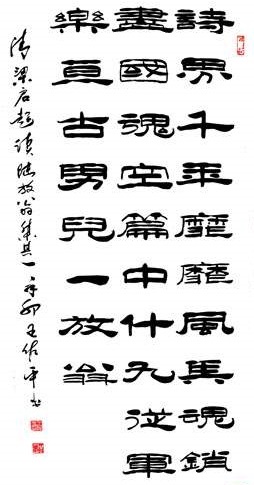 詩界千年靡靡風兵魂銷
盡國魂空篇中什九從軍
樂亘古男兒一放翁
清梁启超读陆放翁集其一辛卯王 平书